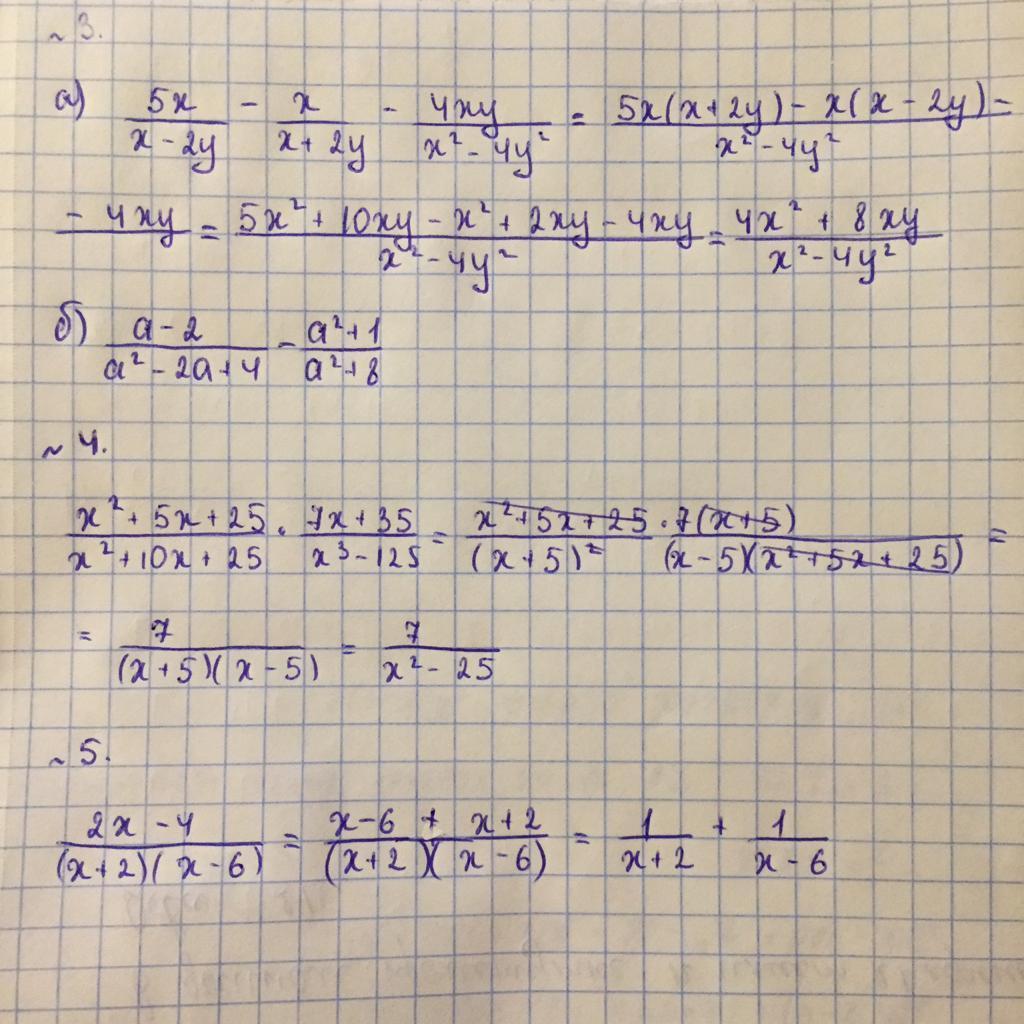 ~ 3.
а) 5x/(x - 2y) - x/(x + 2y) - 4xy/(x² - 4y²) = (5x(x + 2y) - x(x - 2y) -)/(x² - 4y²)
- 4xy = (5x² + 10xy - x² + 2xy - 4xy)/(x² - 4y²) = (4x² + 8xy)/(x² - 4y²)
б) (a - 2)/(a² - 2a + 4) - (a² + 1)/(a² + 8)
~ 4.
(x² + 5x + 25)/(x² + 10x + 25) · (7x + 35)/(x³ - 125) = (x² + 5x + 25 · 7(x + 5))/((x + 5)² (x - 5)(x² + 5x + 25)) =
= 7/((x + 5)(x - 5)) = 7/(x² - 25)
~ 5.
(2x - 4)/((x + 2)(x - 6)) = (x - 6 + x + 2)/((x + 2)(x - 6)) = 1/(x + 2) + 1/(x - 6)